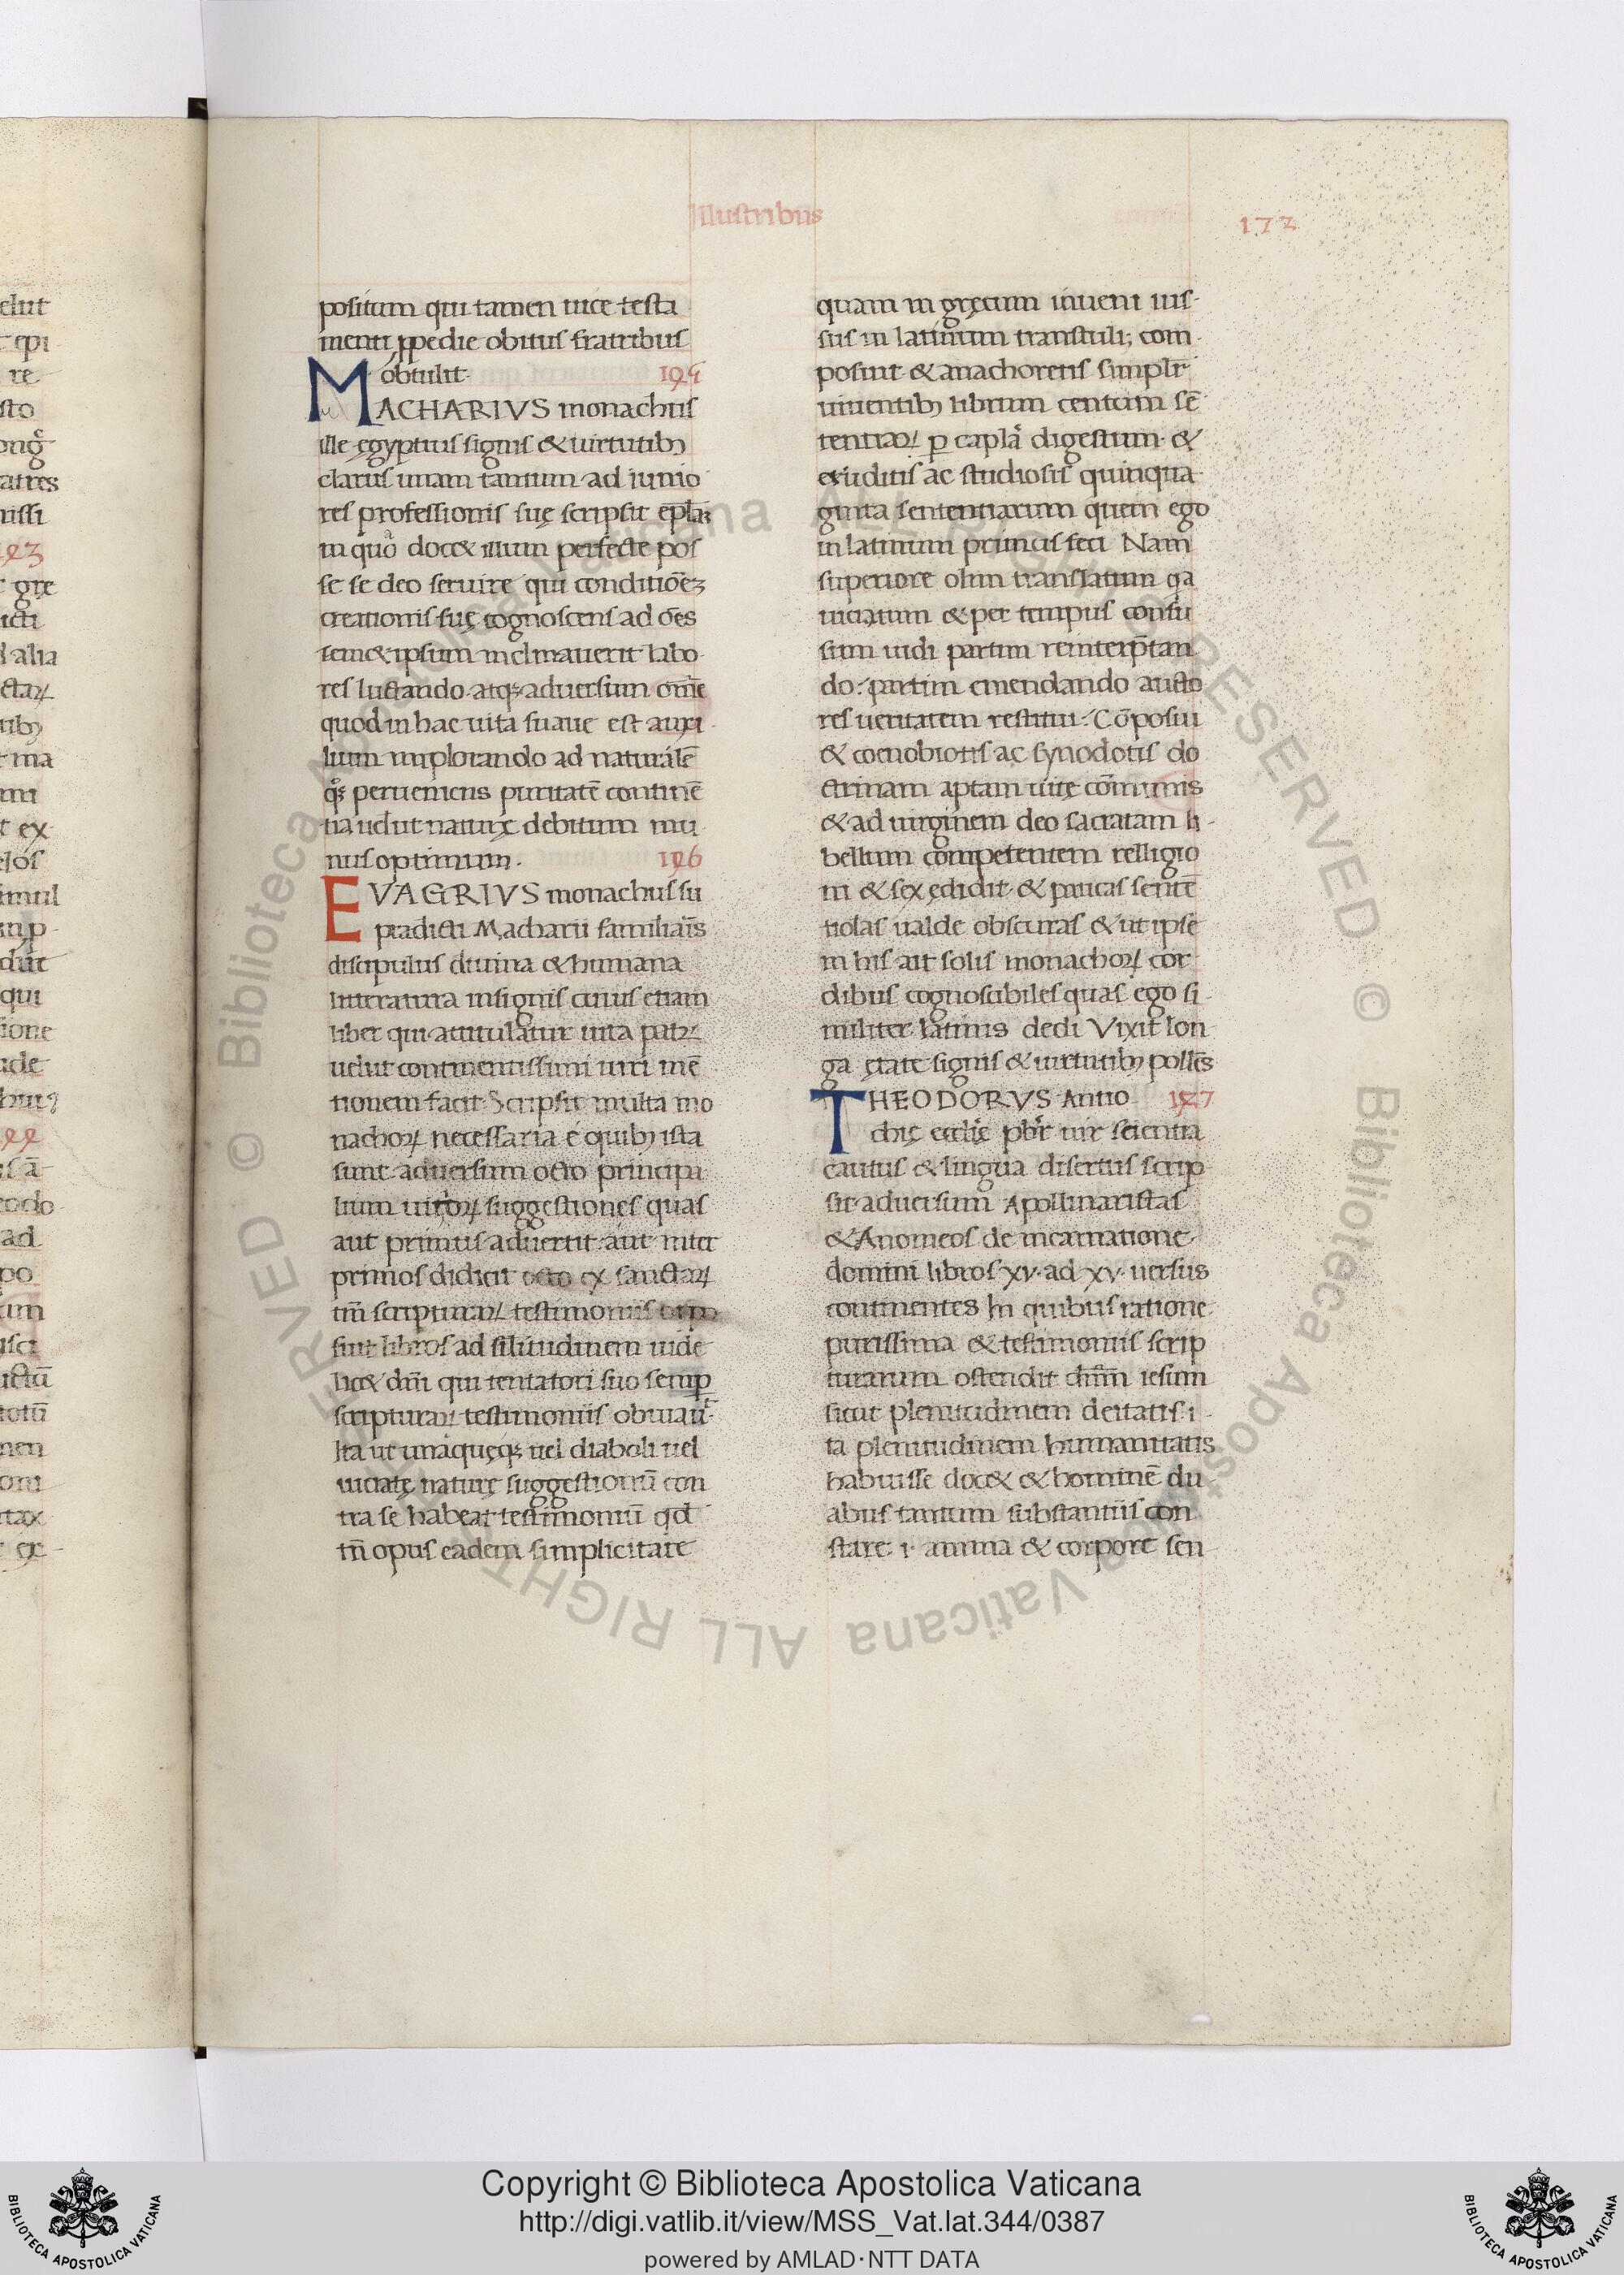 Illustribus
172
positum qui tamen uice testa
menti ꝓpedie obitus fratribus
obtulit 195
MACHARIVS monachus
ille ęgyptius signis & uirtutibꝫ
clarus unam tantum ad iunio
res professionis suę scripsit ep̄lā
in quo doc& illum perfecte pos
se se deo seruire qui conditiōēꝫ
creationis suę cognoscens ad ōēs
semetipsum inclinauerit labo
res luctando atqꝫ aduersum om̄e
quod in hac uita suaue est auxi
lium implorando ad naturalē
qꝫ perueniens puritatē continē
tia uelut naturę debitum mu
nus optimum. 196
EVAGRIVS monachus su
pradicti Macharii familiaris
discipulus diuina & humana
litteratura insignis cuius etiam
liber qui attitulatur uita patꝝ
uelut continentissimi uiri mē
tionem facit Scripsit multa mo
nachoꝝ necessaria é quibꝫ ista
sunt aduersum octo principa
lium uitioꝝ suggestiones quas
aut primus aduertit aut inter
primos didicit octo ex sanctaꝝ
tm̄ scripturaꝝ testimoniis oppo
suit libros ad silitudinem uide
lic& dn̄i qui tentatori suo semꝑ
scripturaꝝ testimoniis obuiauit
Ita ut unaquęqꝫ uel diaboli uel
uiciatę naturę suggestionū con
tra se habeat testimoniū qd
tm̄ opus eadem simplicitate
quam in gręcum inueni ius
sus in latinum transtuli; com
posuit & anachoretis simplr̄
uiuentibꝫ librum centum sē
tentiaꝝ ꝑ capla digestum &
eruditis ac studiosis quinqua
ginta sententiarum quem ego
in latinum primus feci Nam
superiore olim translatum qa
uiciatum & per tempus confu
sum uidi partim reinterp̄tan
do: partim emendando aucto
res ueritatem restitui: Cōposui
& coenobiotis ac synodotis do
ctrinam aptam uitę cōmunis
& ad uirginem deo sacratam li
bellum competentem relligio
ni & sex ędidit & paucas sentē
tiolas ualde obscuras & ut ipse
in his ait solis monachoꝝ cor
dibus cognoscibiles quas ego si
militer latinis dedi Vixit lon
ga ętate signis & uirtutibꝫ pollēs
THEODORVS Antio 197
chię ecclię pbr̄ uir scientia
cautus & lingua disertus scrip
sit aduersum Apollinaristas
& Anomeos de incarnatione
domini libros xv. ad xv. uersus
continentes In quibus ratione
purissima & testimoniis scrip
turarum ostendit dn̄m iesum
sicut plenitudinem deitatis i
ta plenitudinem humanitatis
habuisse doc& & hominē du
abus tantum substantiis con
stare .i. anima & corpore sen
Copyright © Biblioteca Apostolica Vaticana
http://digi.vatlib.it/view/MSS_Vat.lat.344/0387
powered by AMLAD·NTT DATA